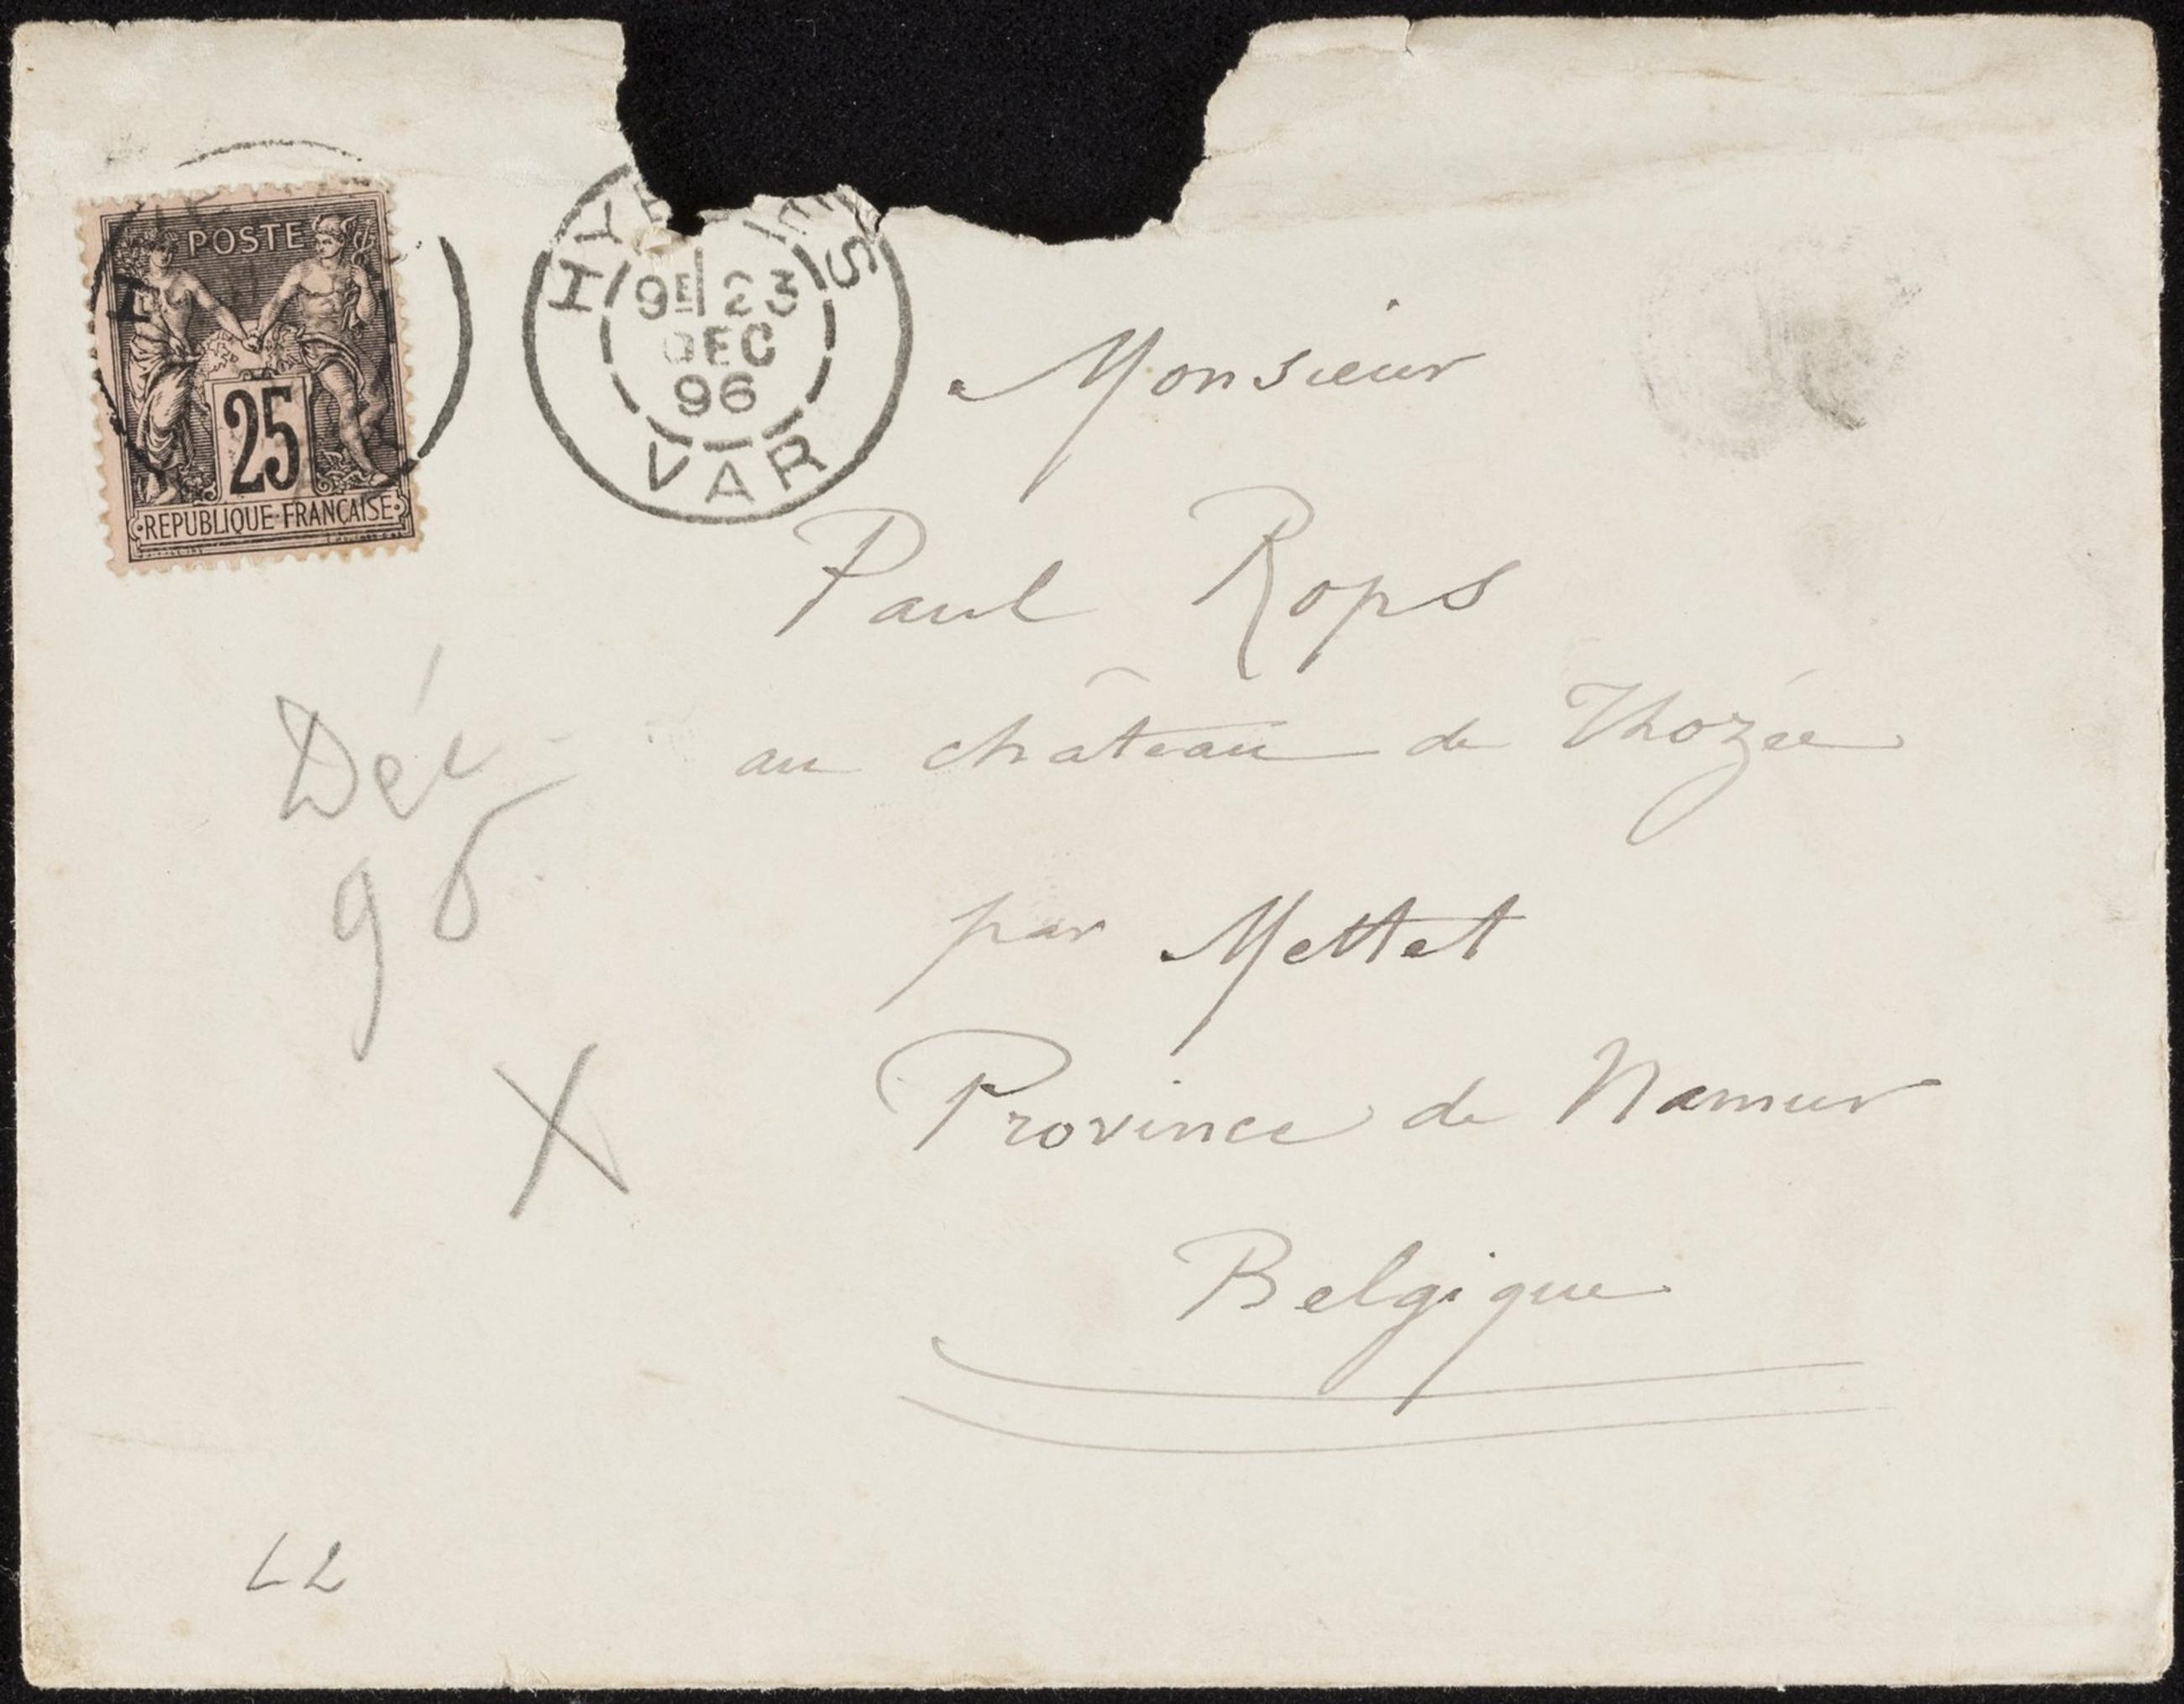 POSTE
25
REPUBLIQUE FRANÇAISE
HYERES
9E 23
DEC
96
VAR
Monsieur
Paul Rops
au château de Thozée
par Mettet
Province de Namur
Belgique
Déc
96
X
L2